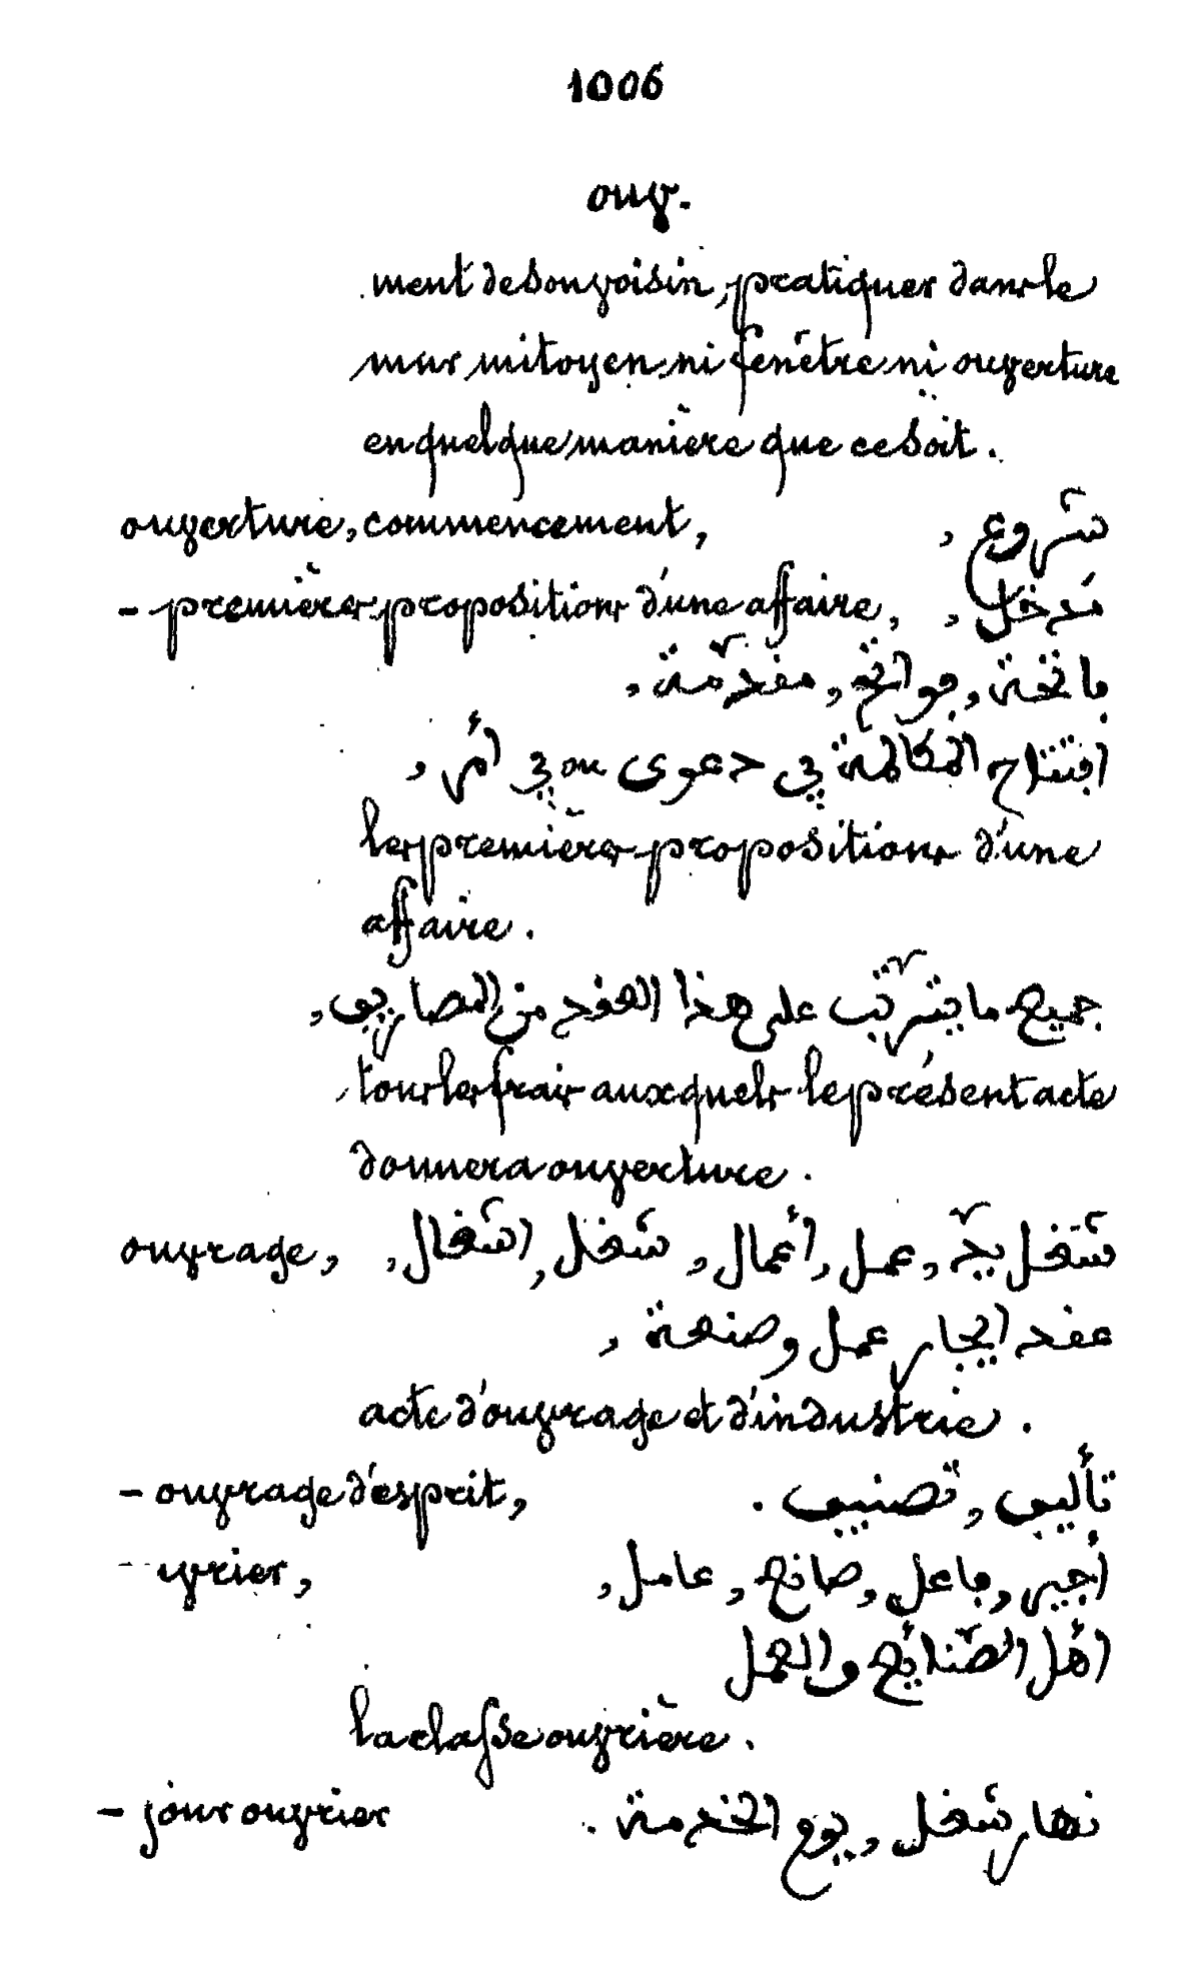 1006
ouv.
ment de son voisin, pratiquer dans le
mur mitoyen, ni fenêtre ni ouverture
en quelque manière que ce soit.
ouverture, commencement, شروع,
- premières propositions d'une affaire, مدخل,
فاتحة, فواتح, مقدّمة,
افتتاح المكالمة في دعوى ou في أمر,
les premières propositions d'une
affaire.
جميع ما يترتّب على هذا العقد من المصاريف,
tous les frais auxquels le présent acte
donnera ouverture.
ouvrage, شغل يدّ, عمل, أعمال, شغل, اشغال,
عقد ايجار عمل وصنعة,
acte d'ouvrage et d'industrie.
- ouvrage d'esprit, تأليف, تصنيف.
- vrier, أجير, فاعل, صانع, عامل,
أهل الصّنايع والعمل
la classe ouvrière.
- jour ouvrier نهار شغل, يوم الخدمة.